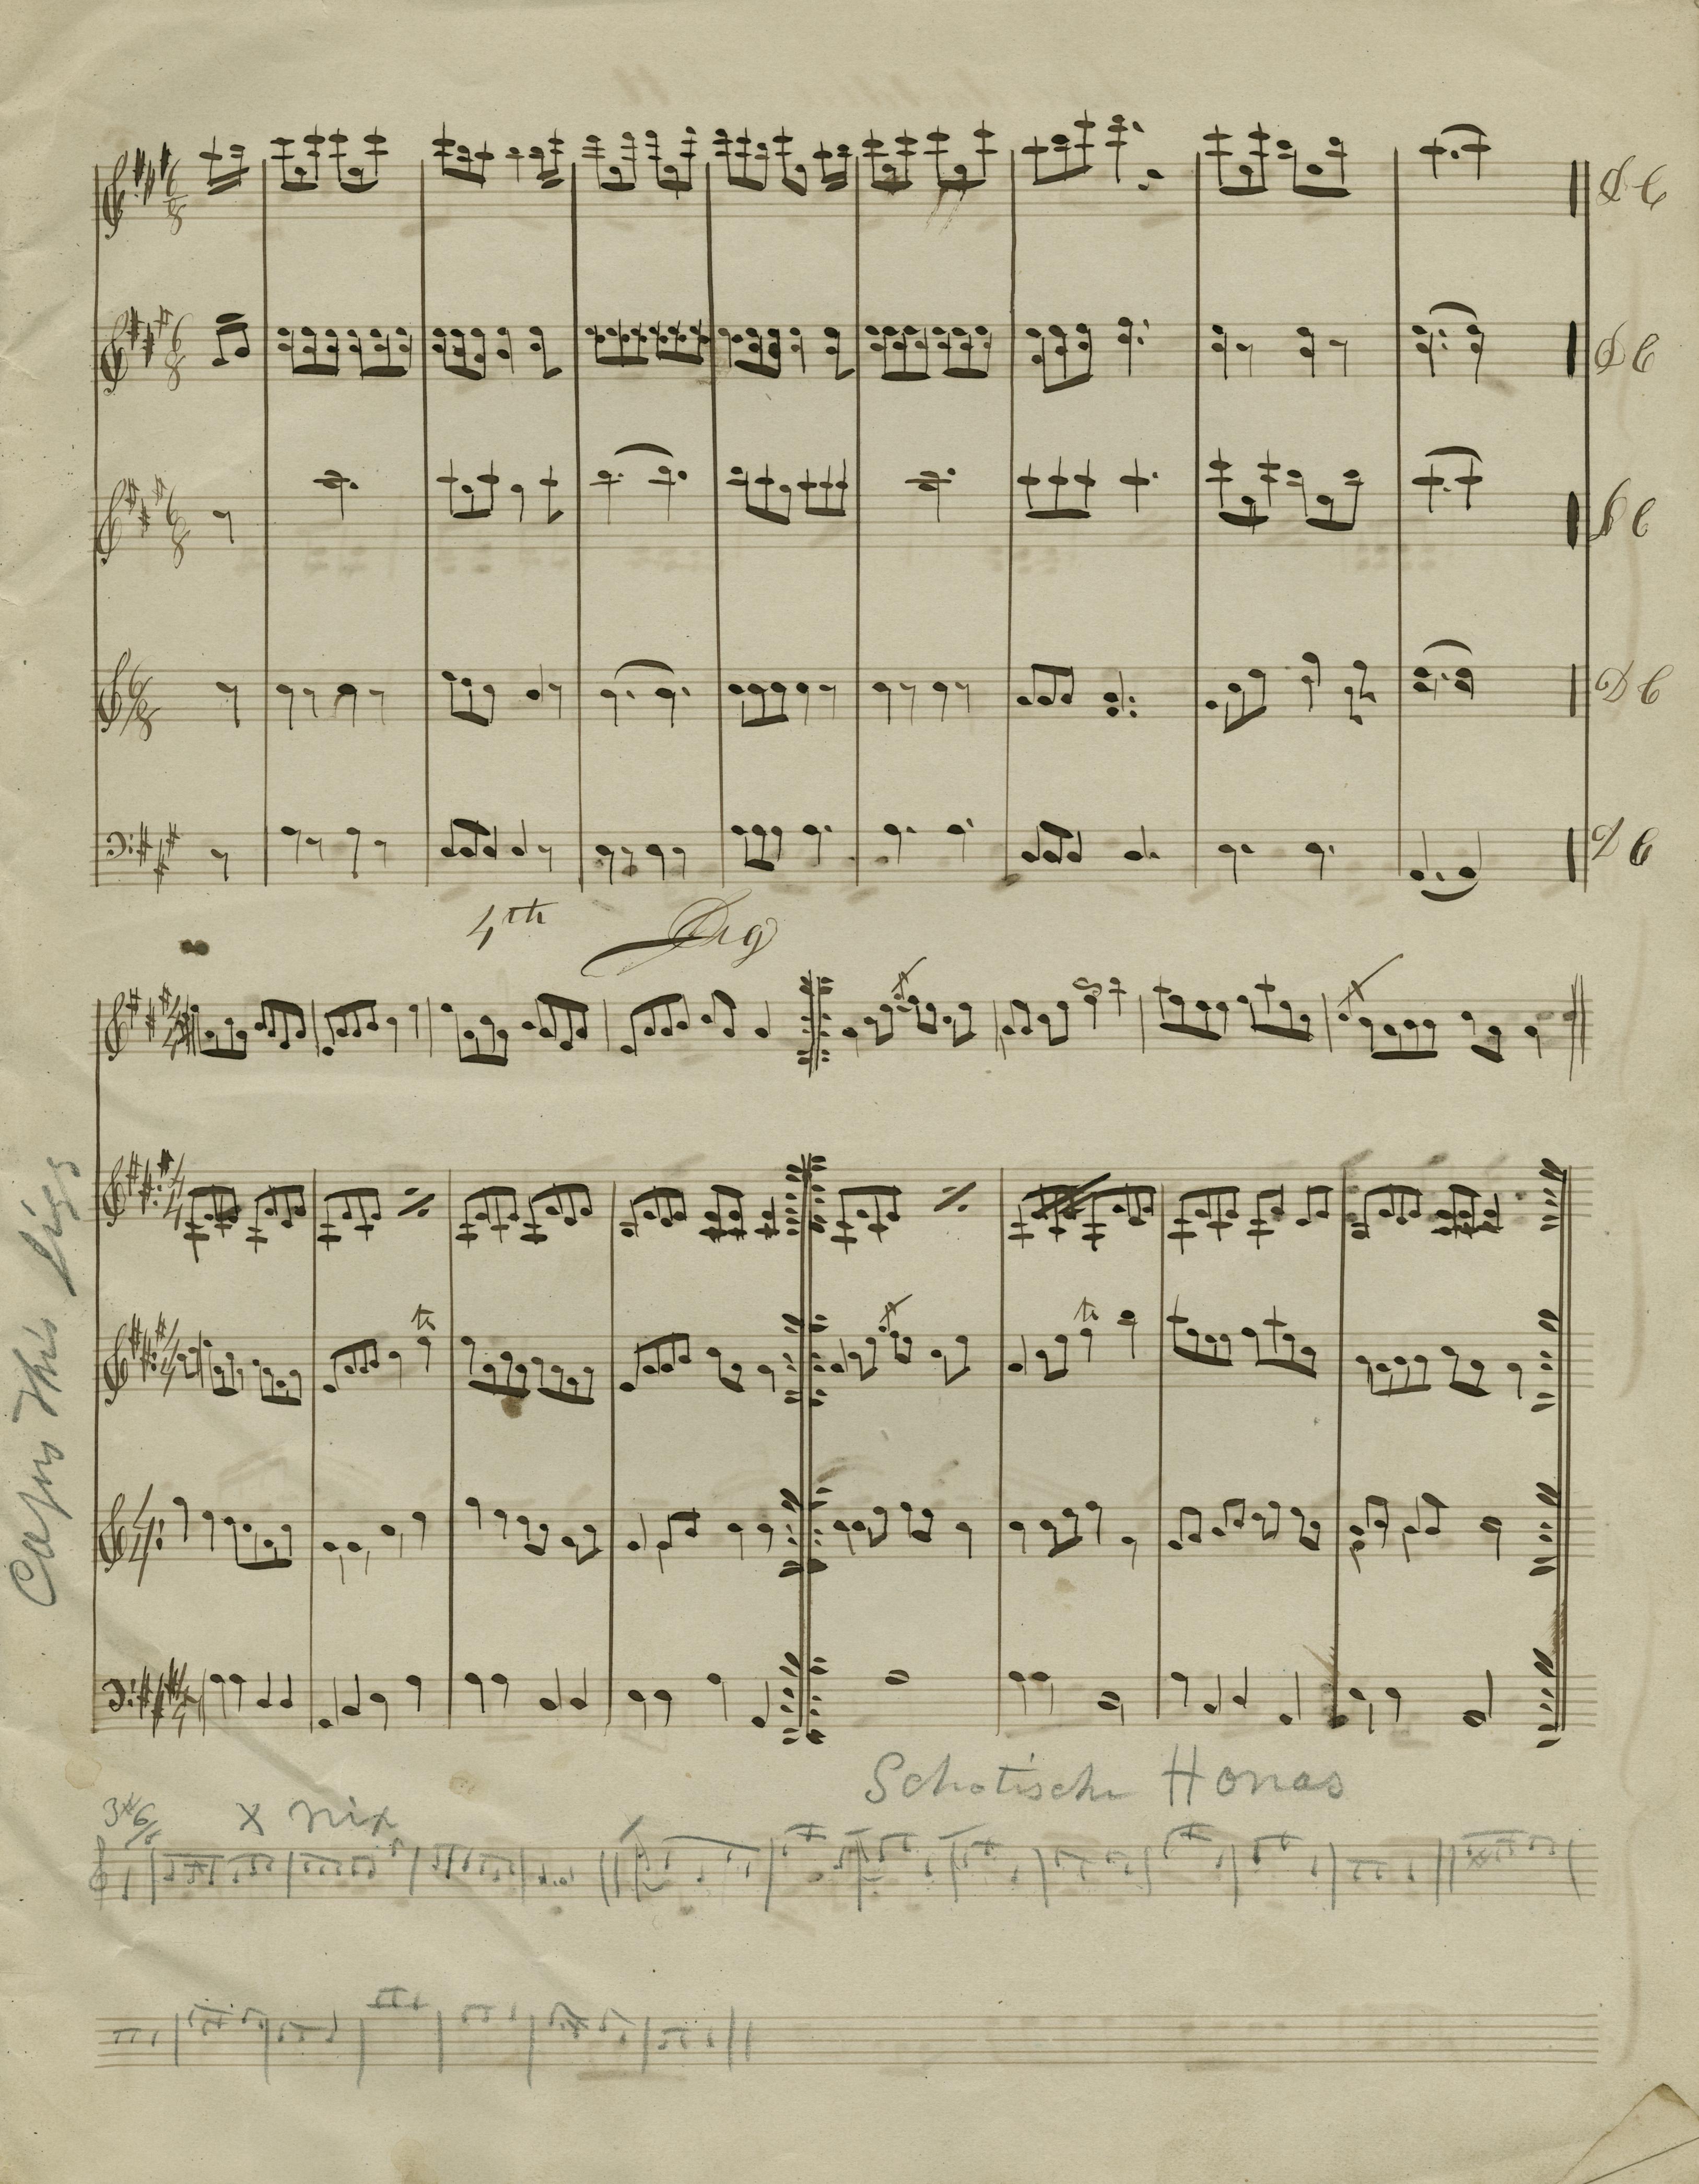 D C
D C
D C
D C
D C
4th Fig
Copy this Figs
Schotische Honas
3# 6/8 X nix